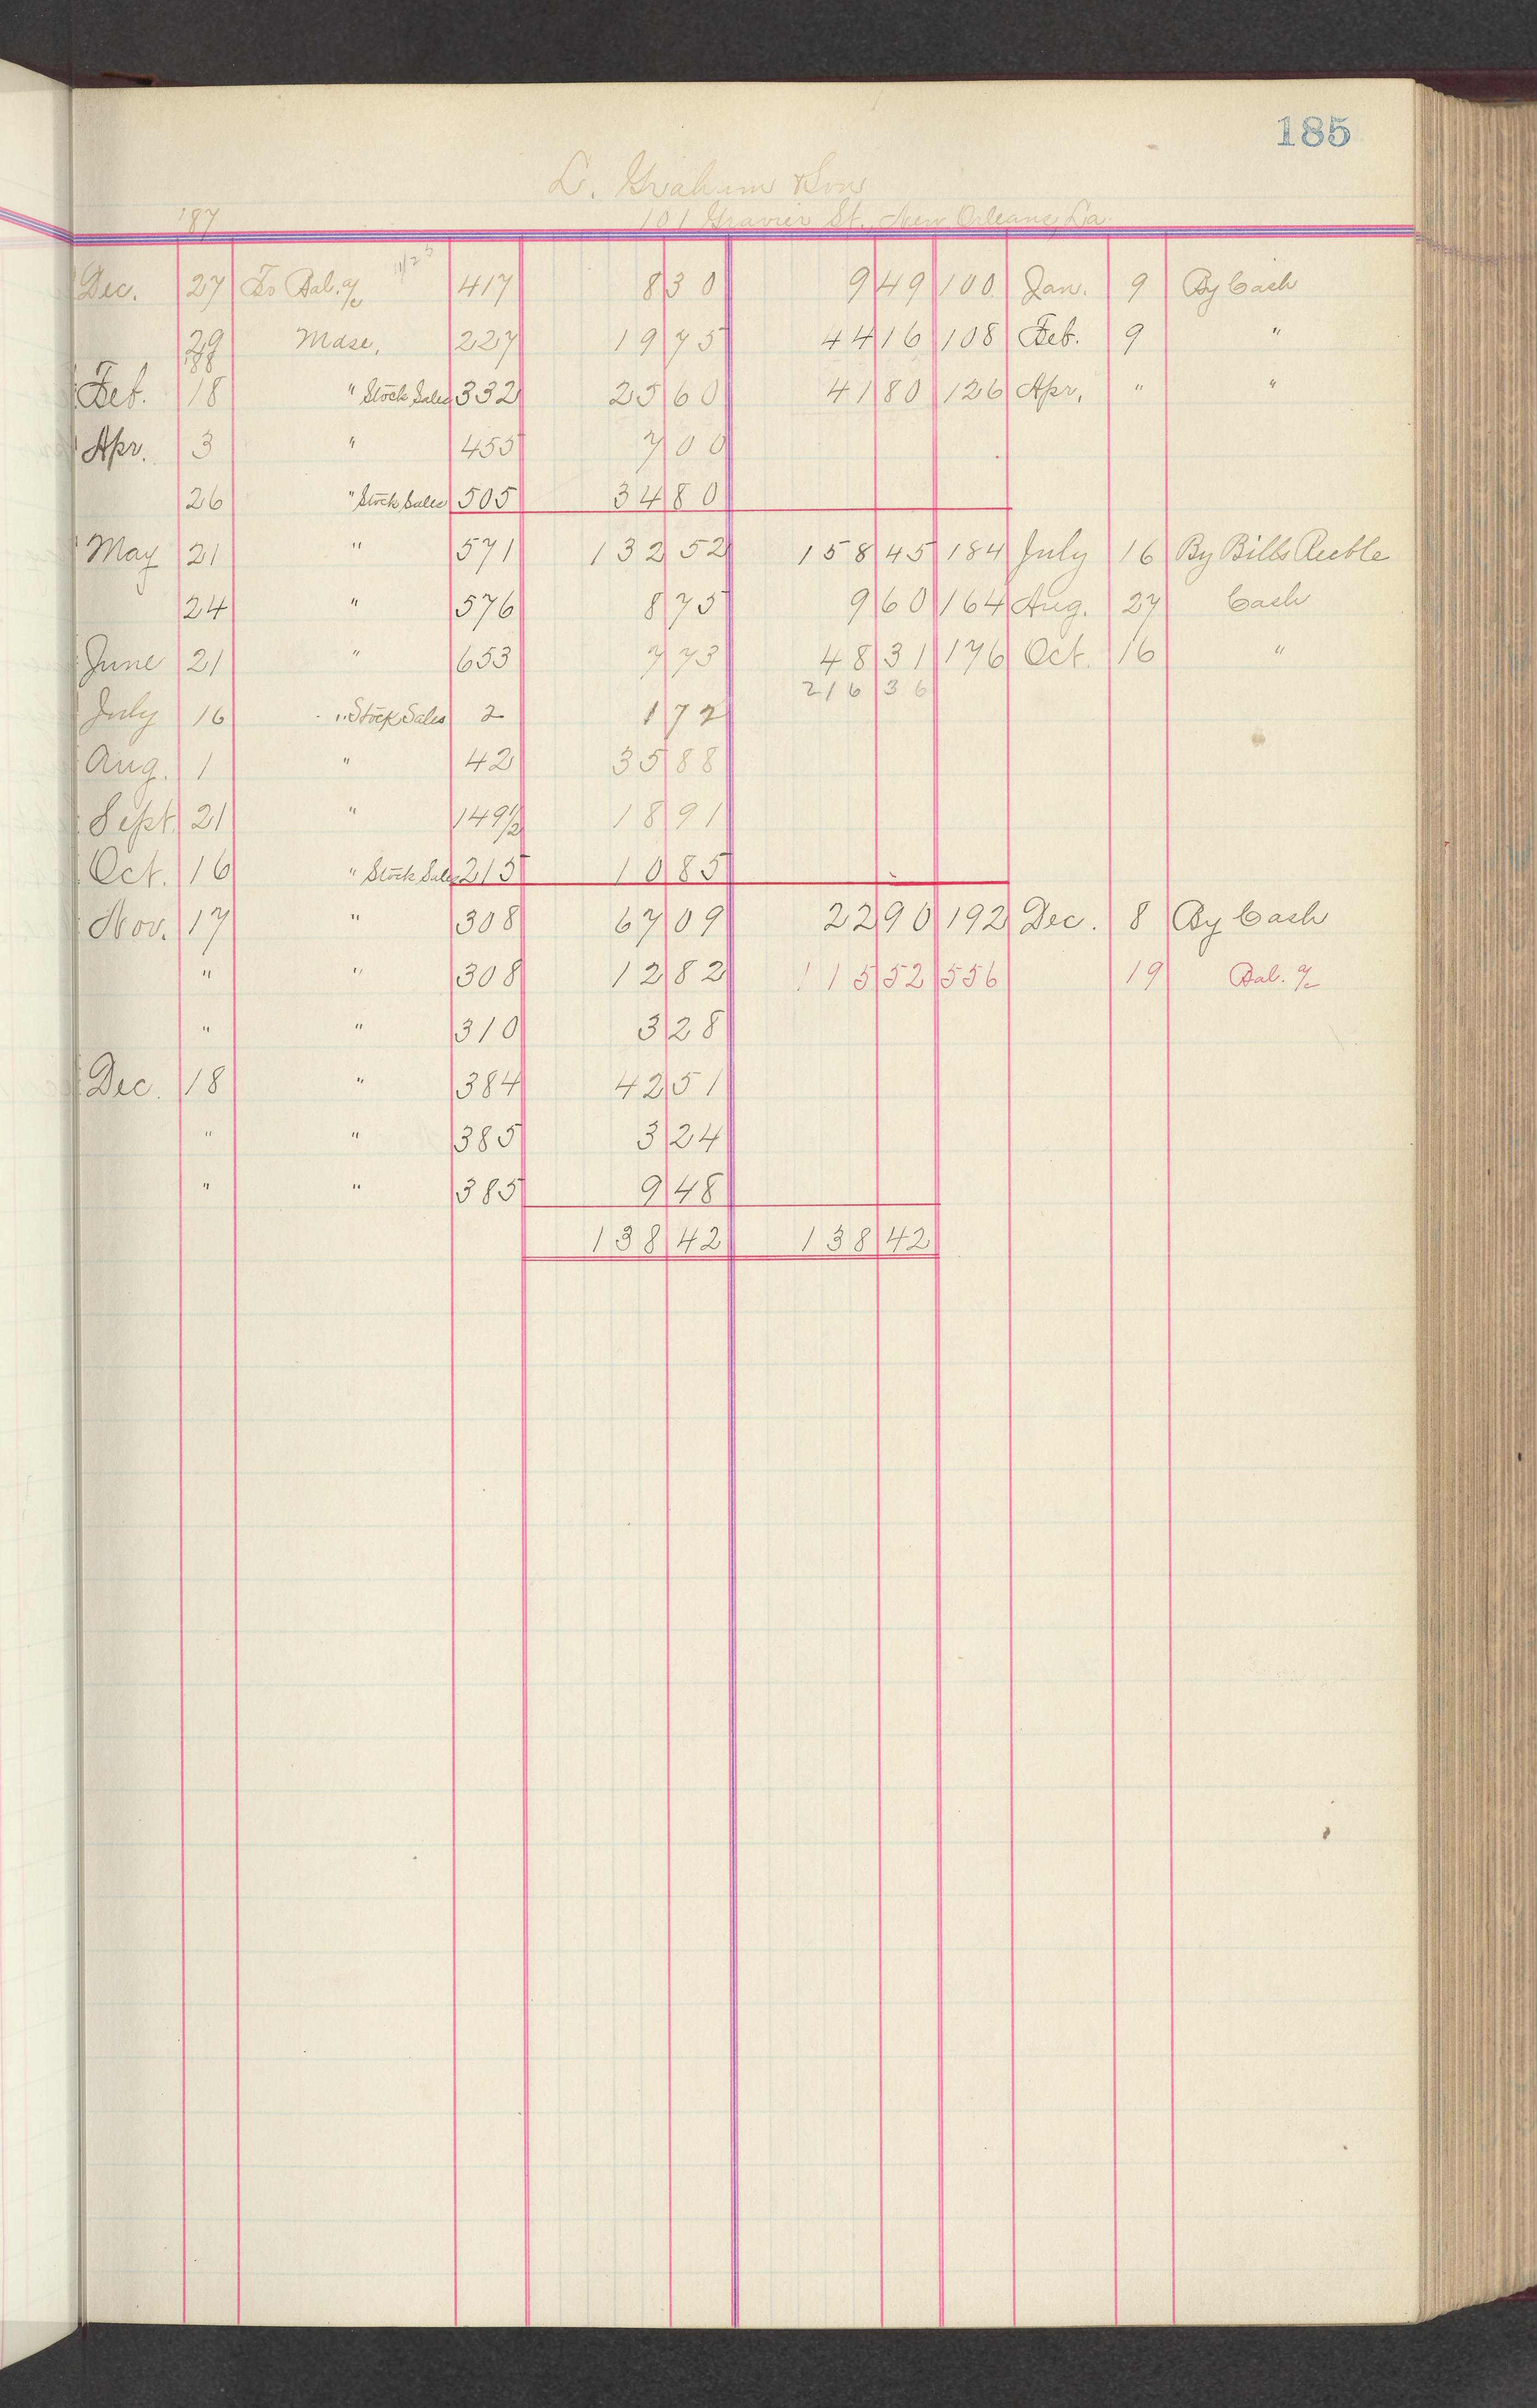 185
L. Graham & Son
'87 101 Gravier St., New Orleans, La.
Dec. 27 To Bal. a/c 11/25 417 8 30 9 49 100 Jan. 9 By Cash
29 Mdse, 227 19 75 44 16 108 Feb. 9 "
'88
Feb. 18 " Stock Sales 332 25 60 41 80 126 Apr, " "
Apr. 3 " 455 7 00
26 " Stock Sales 505 34 80
May 21 " 571 132 52 158 45 184 July 16 By Bills Recble
24 " 576 8 75 9 60 164 Aug. 27 Cash
June 21 " 653 7 73 48 31 176 Oct. 16 "
216 36
July 16 " Stock Sales 2 1 72
Aug. 1 " 42 35 88
Sept. 21 " 149 1/2 18 91
Oct. 16 " Stock Sales 215 10 85
Nov. 17 " 308 67 09 22 90 192 Dec. 8 By Cash
" " 308 12 82 115 52 556 19 Bal. a/c
" " 310 3 28
Dec. 18 " 384 42 51
" " 385 3 24
" " 385 9 48
138 42 138 42